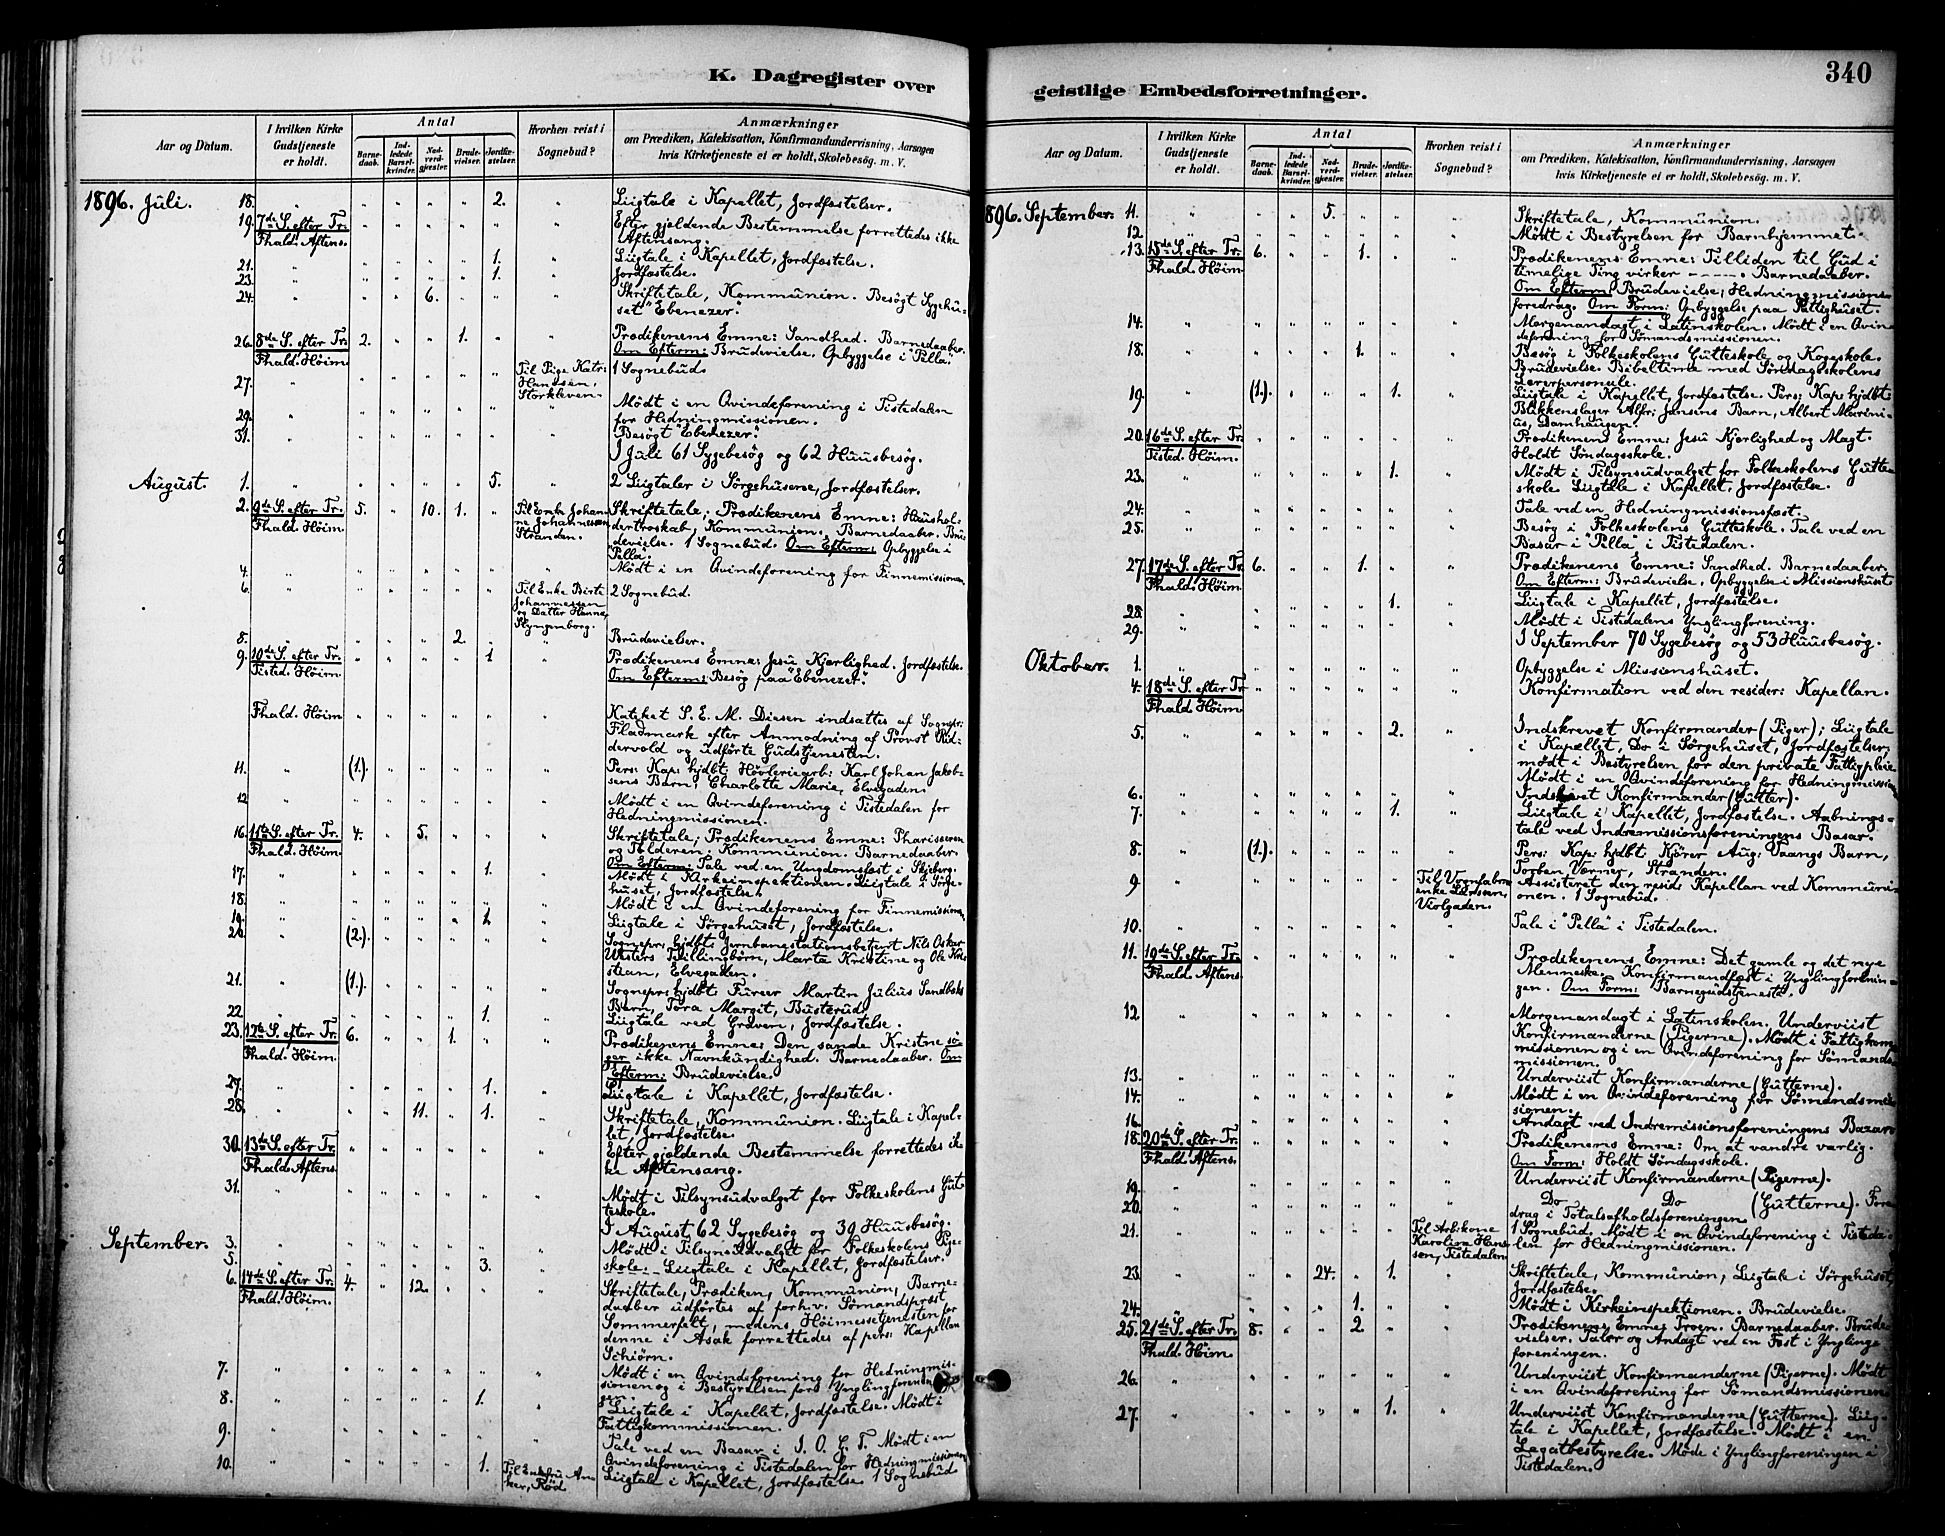 K. Dagregister over
Aar og Datum.
I hvilken Kirke
Gudstjeneste
er holdt.
Antal
Barne-
daab.
Ind-
ledede
Barsel-
kvinder.
Nad-
verd-
gjester.
Brude-
vielser.
Jordfæ-
stelser.
Hvorhen reist i
Sognebud?
Anmærkninger
om Prædiken, Katekisation, Konfirmandundervisning, Aarsagen
hvis Kirketjeneste ei er holdt, Skolebesøg. m. V.
1896. Juli. 18. 2. Liigtale i Kapellet, Jordfæstelser.
19. 7de S. efter Tr. Efter gjeldende Bestemmelse forrettedes ikke
Fhald. Aftens. Aftensang.
21. 1. Liigtale i Kapellet, Jordfæstelse.
23. 1. Jordfæstelse.
24. 6. Skriftetale, Kommunion. Besøgt Sygehu-
set "Ebenezer".
26. 8de S. efter Tr. 2. 1. Prædikenens Emne: Sandhed. Barnedaaber.
Fhald. Høim. Om Efterm: Brudevielse. Opbyggelse i "Pella".
27. Til Pige Katr: 1 Sognebud.
Hanssen,
Storkleven.
29. Mødt i en Qvindeforening i Tistedalen
for Hedningmissionen.
31. Besøgt "Ebenezer".
I Juli 61 Sygebesøg og 62 Huusbesøg.
August. 1. 5. 2 Liigtaler i Sørgehusene, Jordfæstelser.
2. 9de S. efter Tr. 5. 10. 1. Til Enke Johan- Skriftetale; Prædikenens Emne: Hushol-
Fhald. Høim. ne Johannessen dertroskab, Kommunion. Barnedaaber. Bru-
Stranden. devielse. 1 Sognebud. Om Efterm: Opbyggelse i
"Pella".
4. Mødt i en Qvindeforening for Finnemissionen.
6. Til Enke Birte 2 Sognebud.
Johannessen
og Datter Hanna,
Slyngenborg.
8. 2. Brudevielser.
9. 10de S. efter Tr. 1 Prædikenens Emne: Jesu Kjærlighed. Jordfæstelse.
Tisted. Høim. Om Efterm: Besøg paa "Ebenezer".
Fhald. Høim. Kateket S. E. M. Diesen indsattes af Sognepr:
Fladmark efter Anmodning af Provst Rid-
dervold og udførte Gudstjenesten.
11. (1.) Pers: Kap: hjdbt Høvleriearb: Karl Johan Jakob-
sens Barn, Charlotte Marie, Elvegaden.
12 Mødt i en Qvindeforening i Tistedalen for
Hedningmissionen.
16. 11te S. efter Tr. 4. 5. Skriftetale; Prædikenens Emne: Pharisæeren
Fhald. Høim. og Tolderen. Kommunion. Barnedaaber.
Om Efterm: Tale ved en Ungdomsfest i Skjeberg.
17. 1. Mødt i Kirkeinspektionen. Liigtale i Sørge-
huset, Jordfæstelse.
18. Mødt i en Qvindeforening for Finnemissionen.
19. 1 Liigtale i Sørgehuset, Jordfæstelse.
20. (2.) Sognepr: hjdbt Jernbanestationsbetjent Nils Oskar
Tvillingbørn, Marta Kristine og Ole Kri-
stian, Elvegaden.
21. (1.) Sognepr: hjdbt Furer Martin Julius Sandbæks
Barn, Tora Margit, Busterud.
22 1. Liigtale ved Graven, Jordfæstelse.
23. 12te S. efter Tr. 6. 1. Prædikenens Emne: Den sande Kristne sø-
Fhald. Høim. ger ikke Navnkundighed. Barnedaaber. Om
Efterm: Brudevielse.
27. 1. Liigtale i Kapellet, Jordfæstelse.
28. 11. 1. Skriftetale, Kommunion. Liigtale i Kapel-
let, Jordfæstelse.
30. 13de S. efter Tr. Efter gjældende Bestemmelse forrettedes ik-
Fhald. Aftens. ke Aftensang.
31. Mødt i Tilsynsudvalget for Folkeskolens Gut-
teskole.
I August 62 Sygebesøg og 39 Huusbesøg.
September. 3. Mødt i Tilsynsudvalget for Folkeskolens Pige-
5. 3. skole. - Liigtale i Kapellet, Jordfæstelser.
6. 14de S. efter Tr. 4. 12. Skriftetale, Prædiken, Kommunion, Barne-
Fhald. Høim. daaber udførtes af forh.v. Sømandsprest
Sommerfelt, medens Høimessetjenesten for
denne i Asak forrettedes af pers: Kapellan
Schiørn.
7. Mødt i en Qvindeforening for Hedningmis-
sionen og i Bestyrelsen for Ynglingforenin-
gen.
8. 1. Liigtale i Kapellet, Jordfæstelse. Mødt i
Fattigkommissionen.
9. Tale ved en Basar i I. O. G. T. Mødt i en
10. 1. Til Enkefru An- Qvindeforening i Tistedalen for Hedningmissionen.
ker, Rød Liigtale i Kapellet, Jordfæstelse 1 Sognebud
geistlige Embedsforretninger.
340
Aar og Datum.
I hvilken Kirke
Gudstjeneste
er holdt.
Antal
Barne-
daab.
Ind-
ledede
Barsel-
kvinder.
Nad-
verd-
gjester.
Brude-
vielser.
Jordfæ-
stelser.
Hvorhen reist i
Sognebud?
Anmærkninger
om Prædiken, Katekisation, Konfirmandundervisning, Aarsagen
hvis Kirketjeneste ei er holdt, Skolebesøg. m. V.
896. September. 11. 5. Skriftetale, Kommunion.
12. Mødt i Bestyrelsen for Barnhjemmet.
13. 15de S. efter Tr. 6. 1. Prædikenens Emne: Tilliden til Gud i
Fhald. Høim. timelige Ting virker - - - -. Barnedaaber.
Om Efterm: Brudevielse, Hedningmissions-
foredrag. Om Form: Opbyggelse paa Fattighuset.
14. Morgenandagt i Latinskolen. Mødt i en Qvin-
deforening for Sømandsmissionen.
18. 1. Besøg i Folkeskolens Gutteskole og Kogeskole.
Brudevielse. Bibeltime med Søndagskolens
Lærerpersonale.
19. (1.) 1. Liigtale i Kapellet, Jordfæstelse. Pers: Kap: hjdbt
Blikkenslager Alfr: Jansens Barn, Albert Marini-
us, Damhaugen.
20. 16de S. efter Tr. Prædikenens Emne: Jesu Kjærlighed og Magt.
Tisted. Høim. Holdt Søndagsskole.
23. 1. Mødt i Tilsynsudvalget for Folkeskolens Gutte-
skole. Liigtale i Kapellet, Jordfæstelse.
24. Tale ved en Hedningmissionsfest.
25. Besøg i Folkeskolens Gutteskole. Tale ved en
Basar i "Pella" i Tistedalen.
27. 17de S. efter Tr. 6. 1. Prædikenens Emne: Sandhed. Barnedaaber.
Fhald. Høim. Om Efterm: Brudevielse, Opbyggelse i Missionshuset.
28. 1. Liigtale i Kapellet, Jordfæstelse.
29. Mødt i Tistedalens Ynglingforening.
I September 70 Sygebesøg og 53 Huusbesøg.
Oktober. 1. Opbyggelse i Missionshuset.
4. 18de S. efter Tr. Konfirmation ved den resider: Kapellan.
Fhald. Høim.
5. 2. Indskrevet Konfirmander (Piger); Liigtale
i Kapellet, Do i Sørgehuset, Jordfæstelser;
mødt i Bestyrelsen for den private Fattigpleie.
Mødt i en Qvindeforening for Hedningmissionen.
6. Indskrevet Konfirmander (Gutter).
7. 1. Liigtale i Kapellet, Jordfæstelse. Aabnings-
tale ved Indremissionsforeningens Basar.
8. (1.) Pers: Kap: hjdbt Kjører Aug: Taangs Barn,
Torben Værner, Stranden.
9. Til Vognfabr: Assisteret den resid: Kapellan ved Kommuni-
enke Larssen, onen. 1 Sognebud.
Violgaden.
10. Tale i "Pella" i Tistedalen.
11. 19de S. efter Tr. Prædikenens Emne: Det gamle og det nye
Fhald. Aftens. Menneske. Konfirmandfest i Ynglingforenin-
gen. Om Form: Barnegudstjeneste.
12 Morgenandagt i Latinskolen. Underviist
Konfirmanderne (Pigerne). Mødt i Fattigkom-
missionen og i en Qvindeforening for Sømands-
missionen.
13. Underviist Konfirmanderne (Gutterne).
14. Mødt i en Qvindeforening for Sømandsmis-
sionen.
16. Andagt ved Indremissionsforeningens Bazar.
18. 20de S. efter Tr. Prædikenens Emne: Om at vandre varlig.
Fhald. Aftens. Om Form: Holdt Søndagsskole.
19. Underviist Konfirmanderne (Pigerne).
20. Do Do (Gutterne). Fore-
drag i Totalafholdsforeningen.
21. Til Arbikone 1 Sognebud. Mødt i en Qvindeforening i Tisteda-
Karolina Han- len for Hedningmissionen.
sen, Tistedalen
23. 24. 1. Skriftetale, Kommunion, Liigtale i Sørgehuset,
Jordfæstelse.
24. 1. Mødt i Kirkeinspektionen. Brudevielse.
25. 21de S. efter Tr. 8. 2. Prædikenens Emne: Troen. Barnedaaber. Brude-
Fhald. Høim. vielser. Taler og Andagt ved en Fest i Ynglinge-
foreningen.
26. Underviist Konfirmanderne (Pigerne). Mødt
i en Qvindeforening for Sømandsmissionen
27. 1. Underviist Konfirmanderne (Gutterne). Liig-
tale i Kapellet, Jordfæstelse. Mødt i en
Legatbestyrelse. Møde i Ynglingforeningen i
Tistedalen.